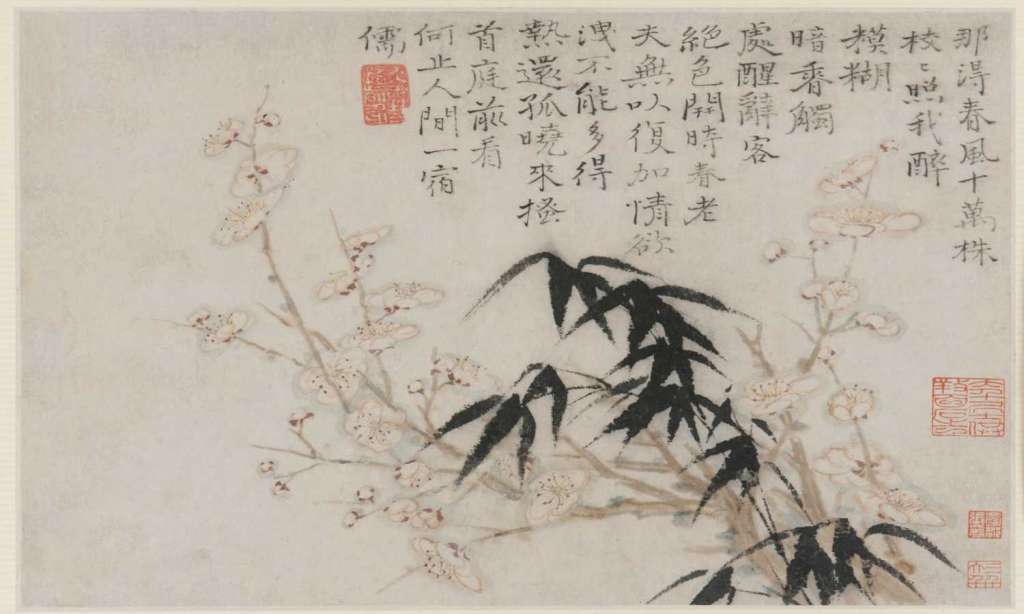 那淂春風十萬株
枝〻照我醉
糢糊
暗香觸
處醒辭客
絕色開時春老
夫無以復加情欲
洩不能多得
熱還孤曉來搔
首庭前看
何止人間一宿
儒